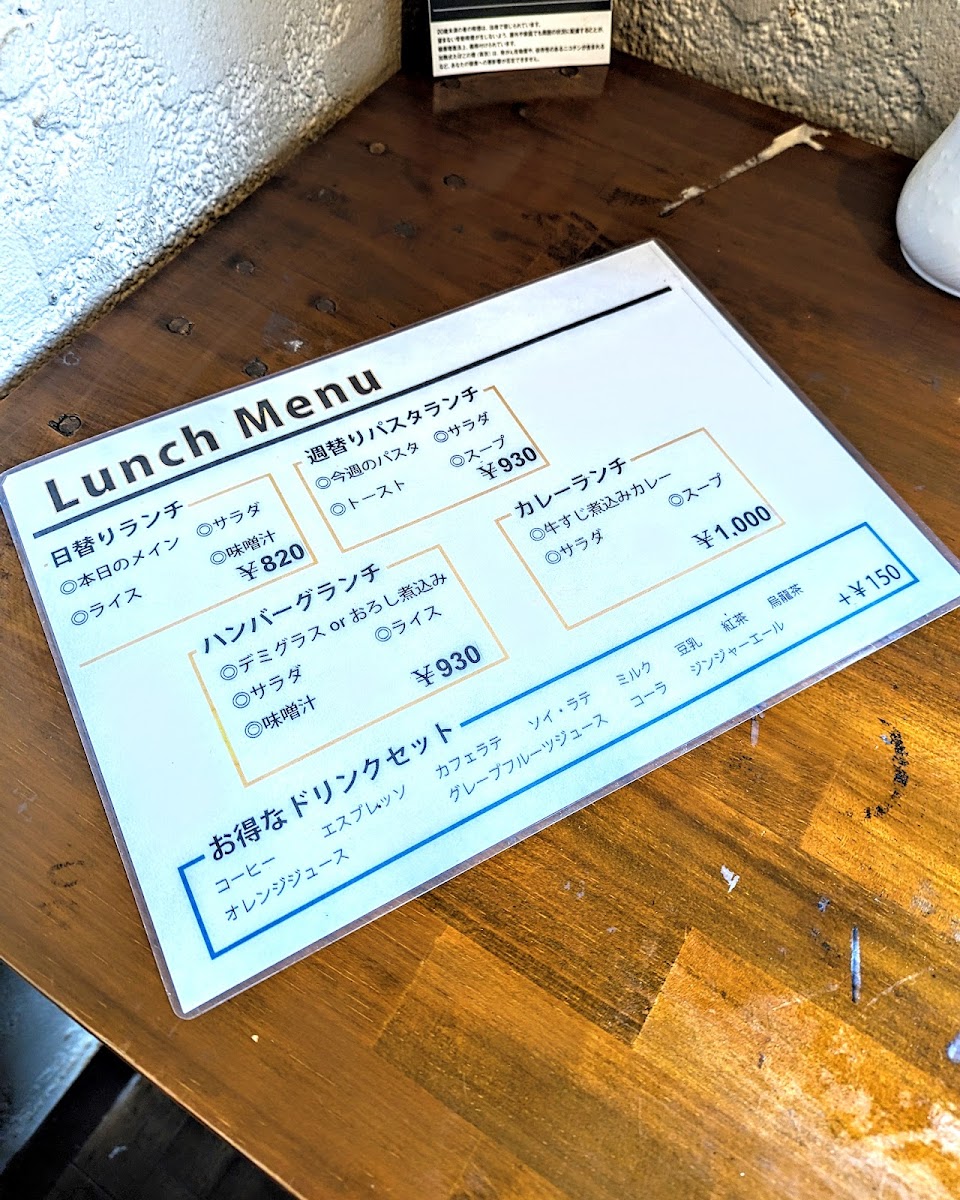 20歳未満の者の喫煙は、法律で禁じられています。
Lunch Menu
日替りランチ
◎本日のメイン ◎サラダ
◎ライス ◎味噌汁
¥820
週替りパスタランチ
◎今週のパスタ ◎サラダ
◎トースト ◎スープ
¥930
ハンバーグランチ
◎デミグラス or おろし煮込み
◎サラダ ◎ライス
◎味噌汁
¥930
カレーランチ
◎牛すじ煮込みカレー
◎サラダ ◎スープ
¥1,000
お得なドリンクセット
コーヒー エスプレッソ カフェラテ ソイ・ラテ ミルク 豆乳 紅茶 烏龍茶
オレンジジュース グレープフルーツジュース コーラ ジンジャーエール
+¥150